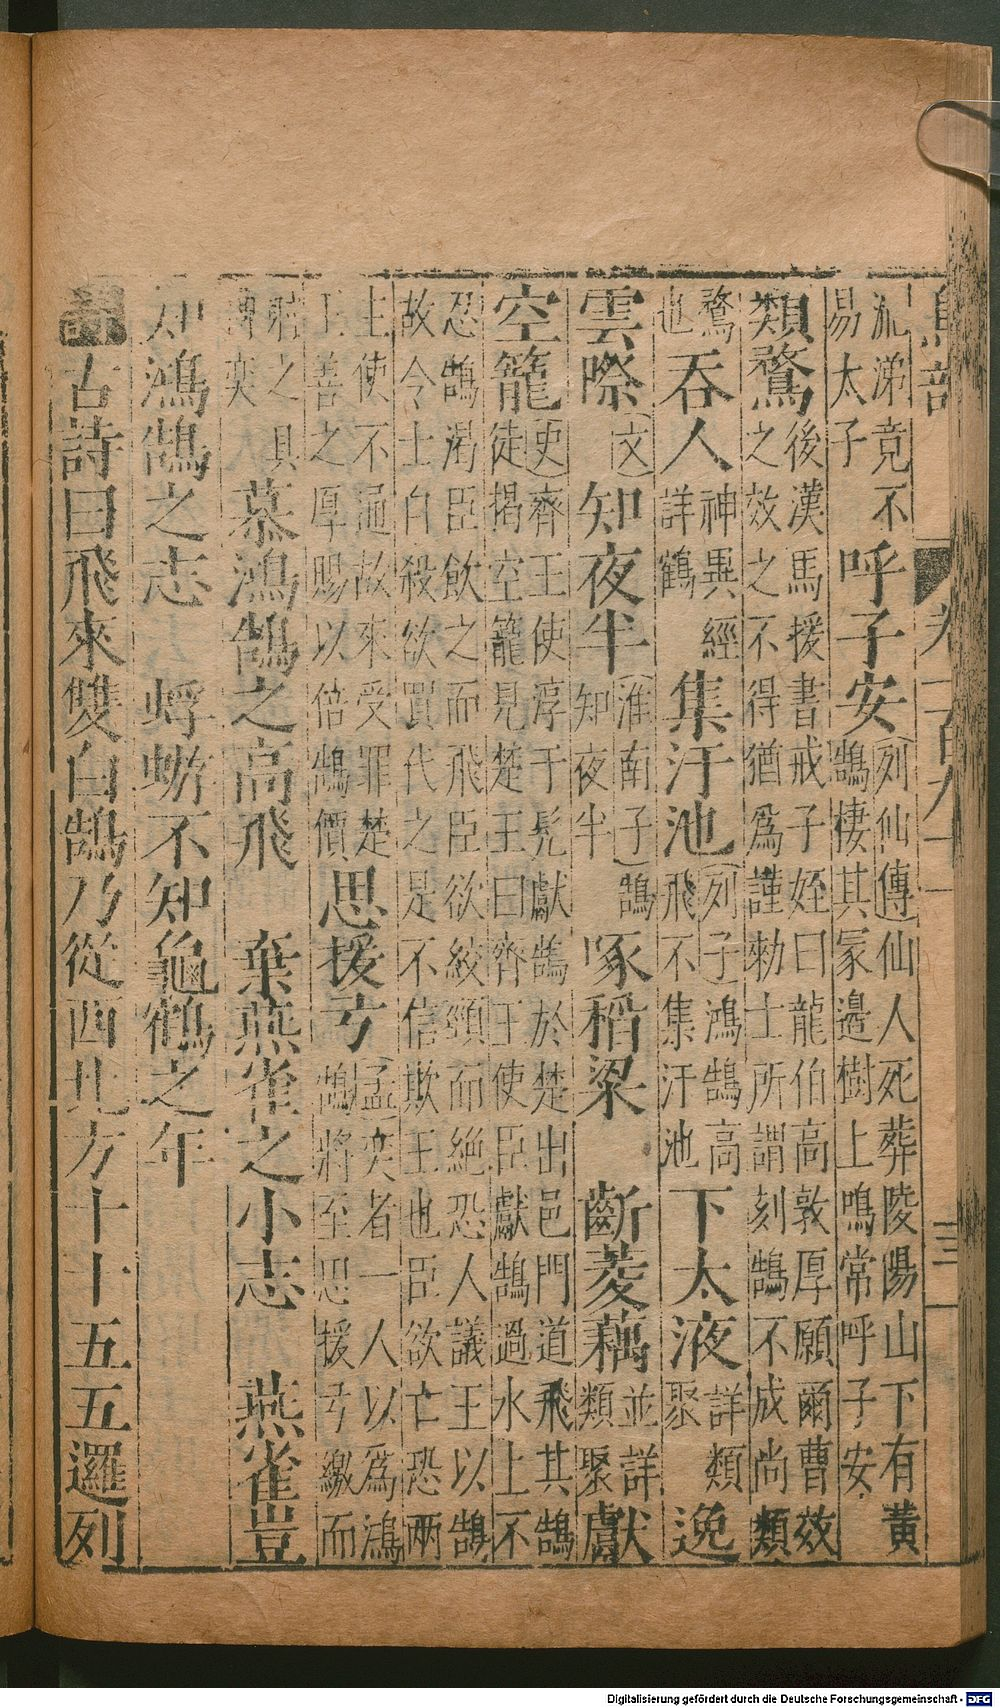 鳥部 卷一百八十 三
流涕竟不易太子 呼子安 列仙傳仙人死葬陵陽山下有黃鵠棲其冢邊樹上鳴常呼子安
類鶩 後漢馬援書戒子姪曰龍伯高敦厚願爾曹效之效之不得猶爲謹勑士所謂刻鵠不成尚類
鶩也 吞人 神異經詳鶴 集汙池 列子鴻鵠高飛不集汙池 下太液 詳類聚 逸
雲際 文 知夜半 淮南子鵠知夜半 啄稻粱 斷菱藕 並詳類聚 獻
空籠 史齊王使淳于髡獻鵠於楚出邑門道飛其鵠徒揭空籠見楚王曰齊王使臣獻鵠過水上不
忍鵠渴臣飲之而飛臣欲絞頸而絕恐人議王以鵠故令士自殺欲買代之是不信欺王也臣欲亡恐兩
主使不通故來受罪楚王善之厚賜以倍鵠價 思援弓 孟奕者一人以爲鴻鵠將至思援弓繳而
射之具博奕 慕鴻鵠之高飛 棄燕雀之小志 燕雀豈
知鴻鵠之志 蜉蝣不知龜鶴之年
古詩曰飛來雙白鵠乃從西北方十十五五邏列
Digitalisierung gefördert durch die Deutsche Forschungsgemeinschaft - DFG